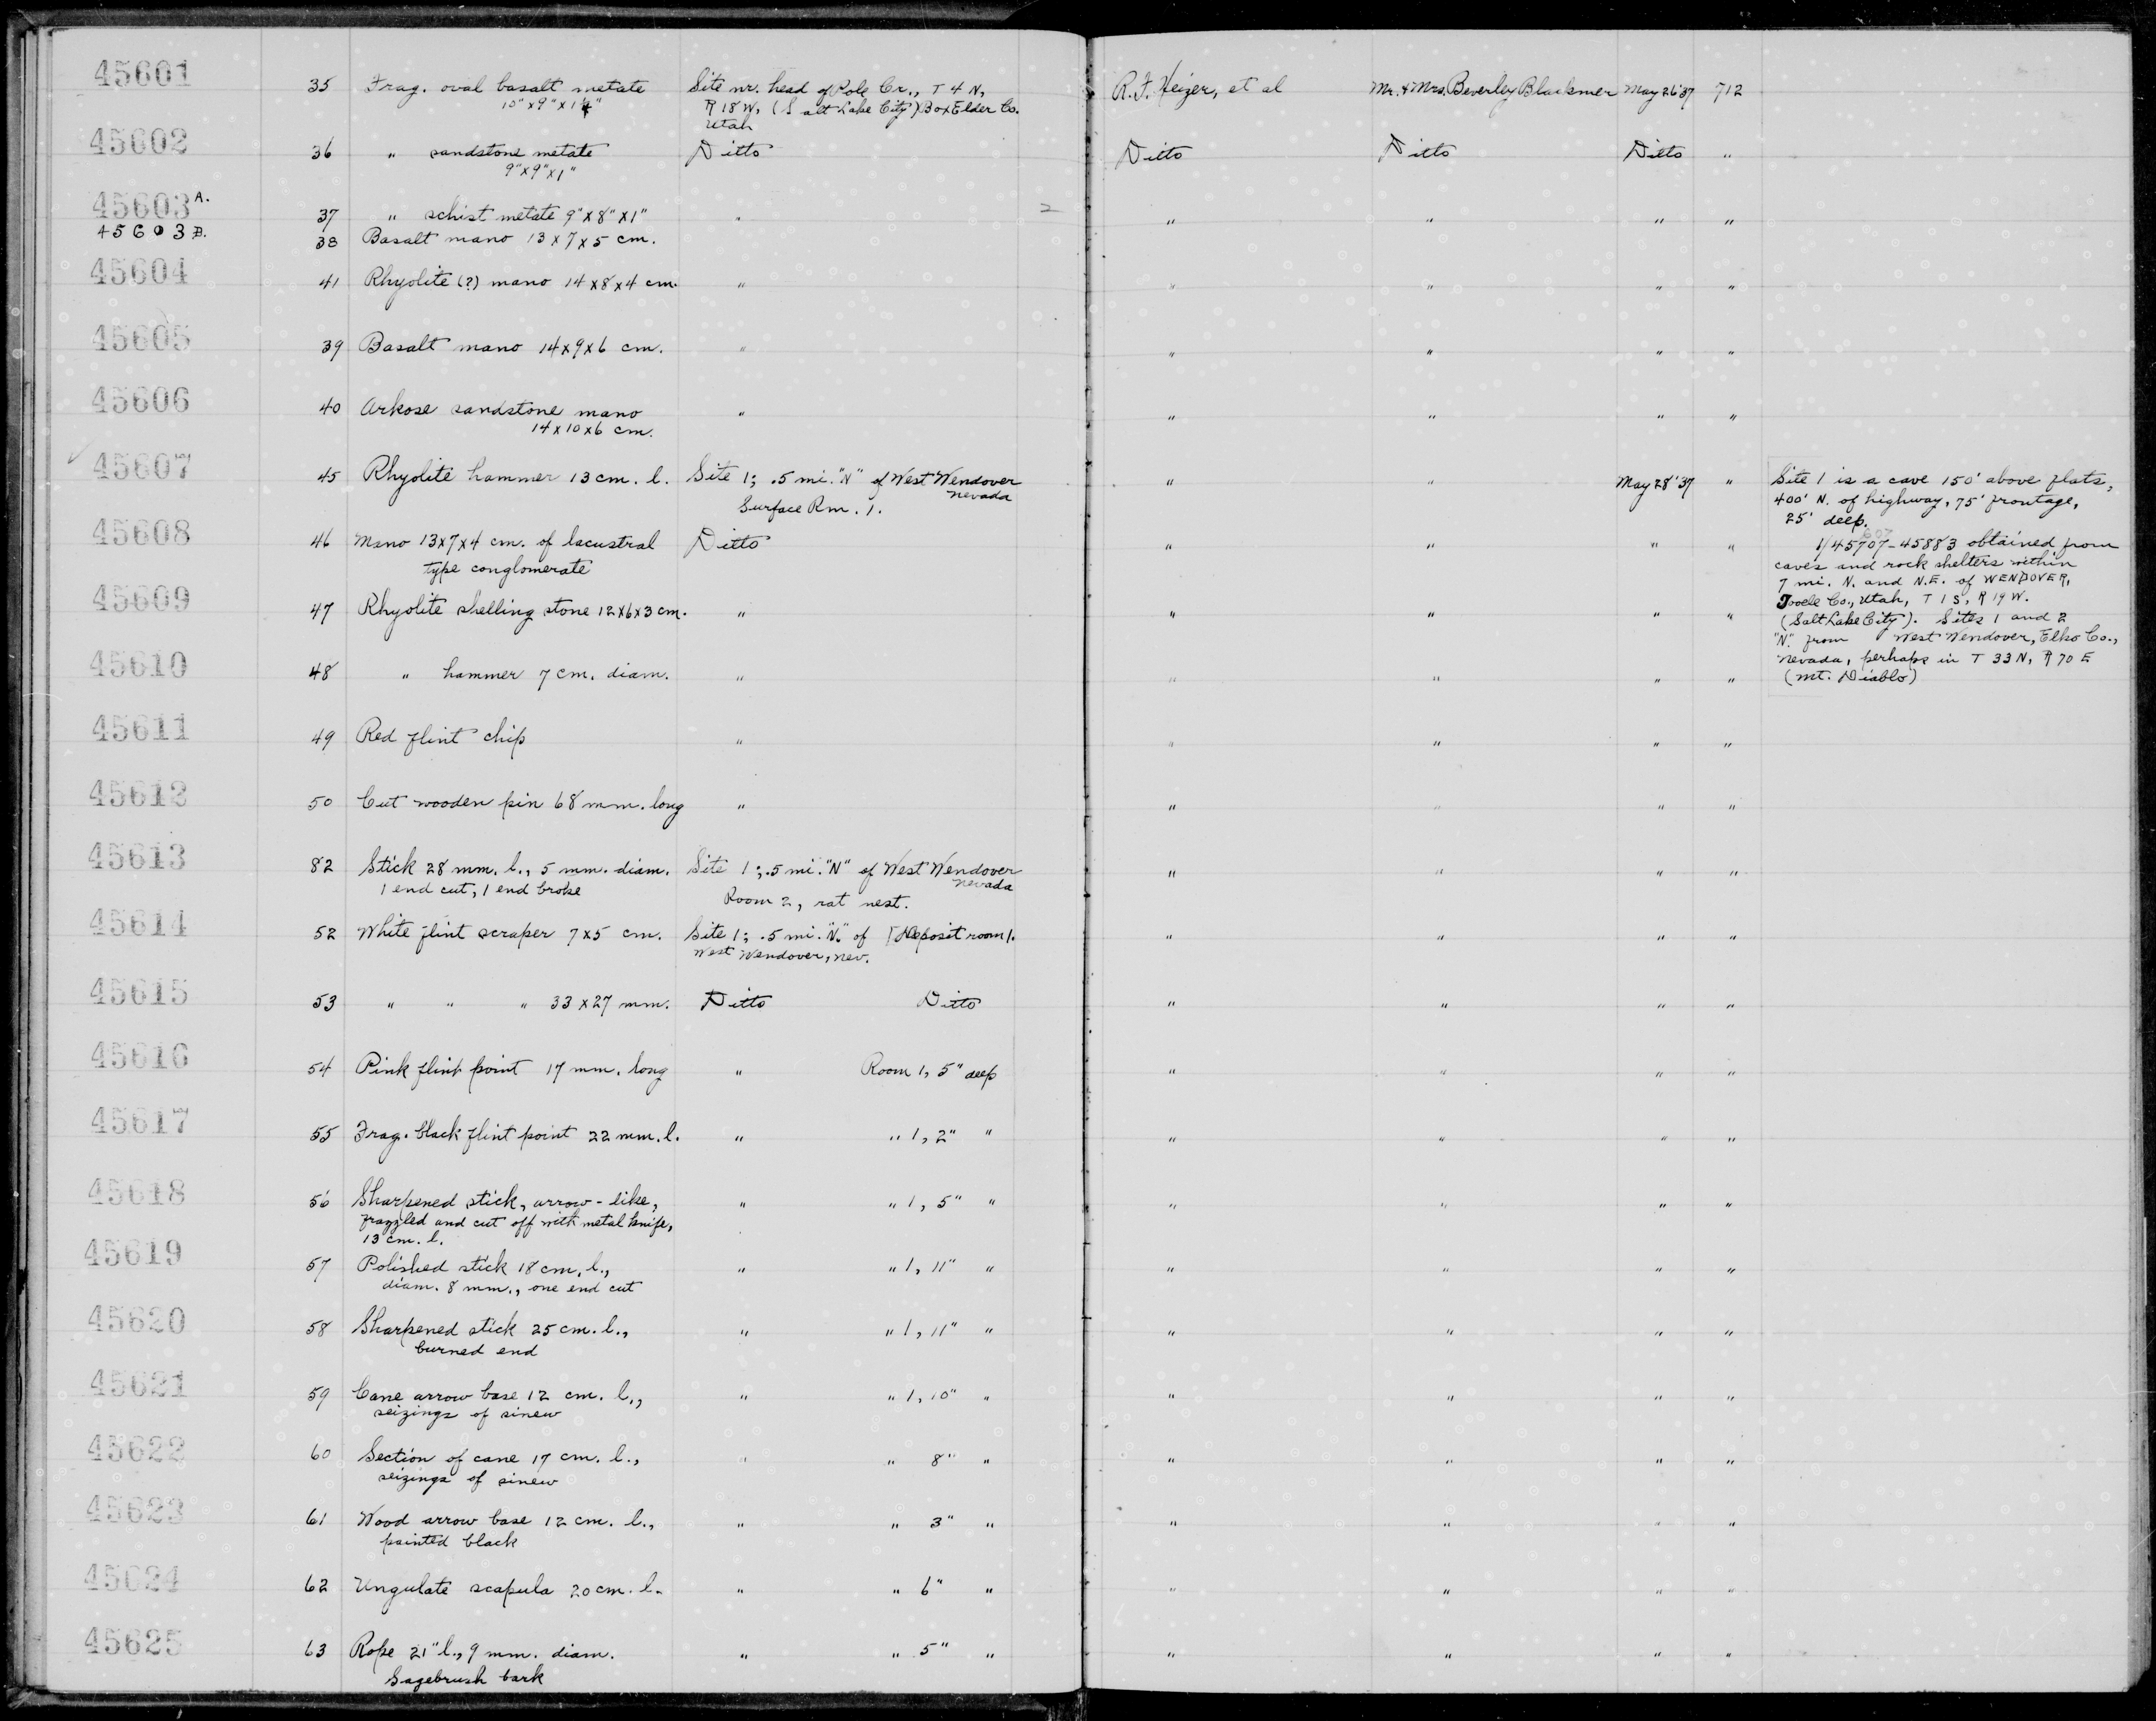 45601 35 Frag. oval basalt metate Site nr. head of Pole Cr., T 4 N, R. F. Heizer, et al Mr. & Mrs. Beverley Blackmer May 26 '37 712
10" x 9" x 1 R 18 W, (Salt Lake City) Box Elder Co.
Utah
45602 36 " sandstone metate Ditto Ditto Ditto Ditto "
9" x 9" x 1"
45603 A. 37 " schist metate 9" x 8" x 1" " 2 " " " "
45603 B. 38 Basalt mano 13 x 7 x 5 cm.
45604 41 Rhyolite (?) mano 14 x 8 x 4 cm. " " " " "
45605 39 Basalt mano 14 x 9 x 6 cm. " " " " "
45606 40 Arkose sandstone mano " " " " "
14 x 10 x 6 cm.
✓ 45607 45 Rhyolite hammer 13 cm. l. Site 1; .5 mi. "N" of West Wendover " " May 28 '37 "
Nevada
Surface Rm. 1.
Site 1 is a cave 150' above flats,
400' N. of highway, 75' frontage,
25' deep.
1/45707-45883 obtained from
caves and rock shelters within
7 mi. N. and N.E. of WENDOVER,
Tooele Co., Utah, T 1 S, R 19 W.
(Salt Lake City). Sites 1 and 2
"N" from West Wendover, Elko Co.,
Nevada, perhaps in T 33 N, R 70 E
(Mt. Diablo)
45608 46 Mano 13x7x4 cm. of lacustral Ditto " " " "
type conglomerate
45609 47 Rhyolite shelling stone 12x6x3 cm. " " " " "
45610 48 " hammer 7 cm. diam. " " " " "
45611 49 Red flint chip " " " " "
45612 50 Cut wooden pin 68 mm. long " " " " "
45613 82 Stick 28 mm. l., 5 mm. diam. Site 1; .5 mi. "N" of West Wendover " " " "
1 end cut, 1 end broke Nevada
Room 2, rat nest.
45614 52 White flint scraper 7x5 cm. Site 1; .5 mi. "N." of Deposit room 1. " " " "
West Wendover, Nev.
45615 53 " " " 33 x 27 mm. Ditto Ditto " " " "
45616 54 Pink flint point 17 mm. long " Room 1, 5" deep " " " "
45617 55 Frag. black flint point 22 mm. l. " " 1, 2" " " " " "
45618 56 Sharpened stick, arrow-like, " " 1, 5" " " " " "
frazzled and cut off with metal knife,
13 cm. l.
45619 57 Polished stick 18 cm. l., " " 1, 11" " " " " "
diam. 8 mm., one end cut
45620 58 Sharpened stick 25 cm. l., " " 1, 11" " " " " "
burned end
45621 59 Cane arrow base 12 cm. l., " " 1, 10" " " " " "
seizings of sinew
45622 60 Section of cane 17 cm. l., " " 8" " " " " "
seizings of sinew
45623 61 Wood arrow base 12 cm. l., " " 3" " " " " "
painted black
45624 62 Ungulate scapula 20 cm. l. " " 6" " " " " "
45625 63 Rope 21" l., 9 mm. diam. " " 5" " " " " "
Sagebrush bark